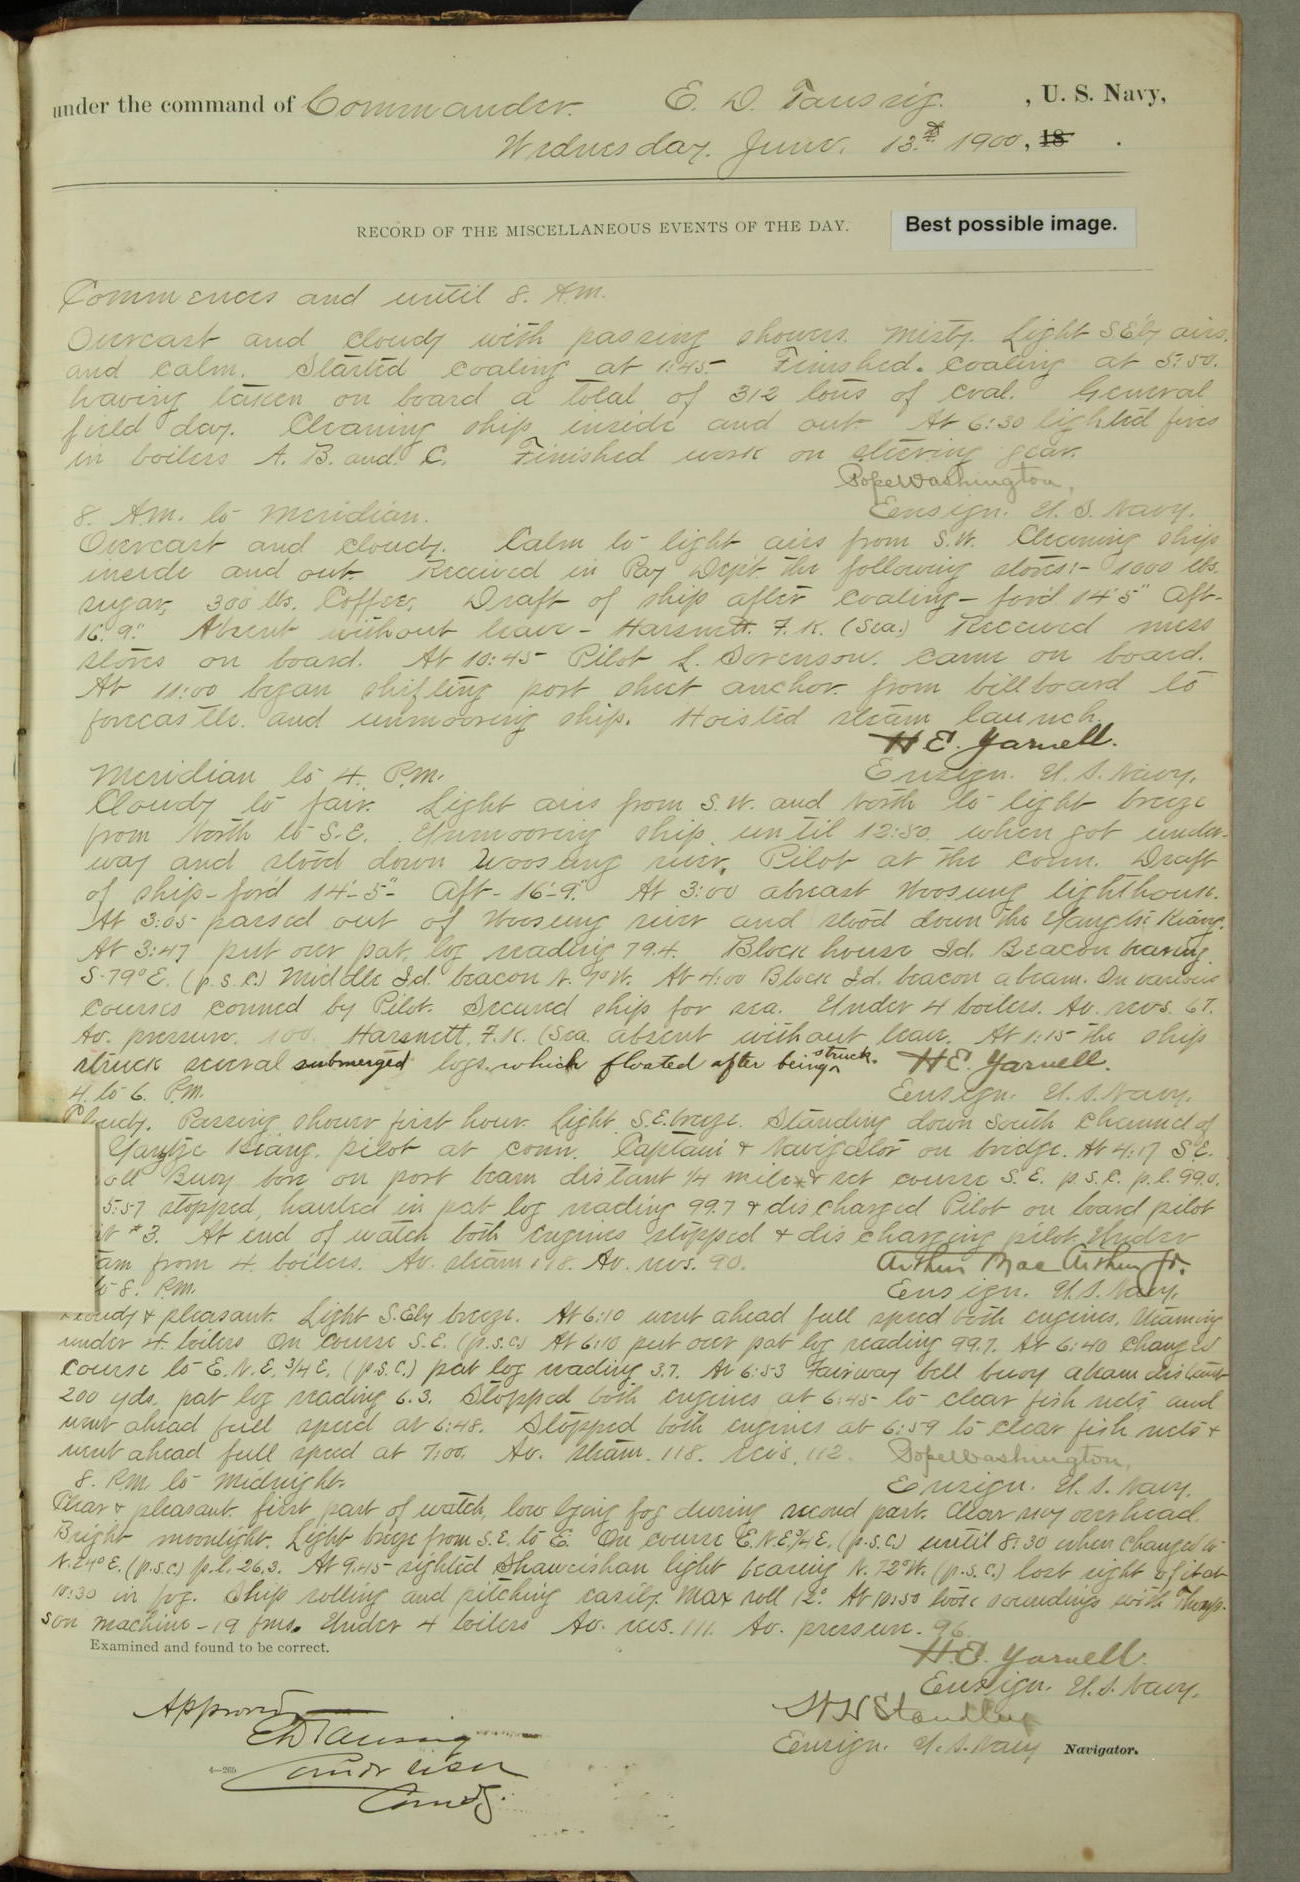 under the command of Commander. E. D. Taussig. , U. S. Navy,
Wednesday. June. 13th 1900, 18 .
RECORD OF THE MISCELLANEOUS EVENTS OF THE DAY.
Best possible image.
Commences and until 8. A.M.
Overcast and cloudy with passing showers. Misty. Light S.E'ly airs.
and calm. Started coaling at 1:45. Finished. coaling at 5:50.
having taken on board a total of 312 tons of coal. General
field day. Cleaning ship inside and out. At 6:30 lighted fires
in boilers A. B. and. C. Finished work on steering gear.
Pope Washington,
Ensign. U. S. Navy.
8. A.M. to Meridian.
Overcast and cloudy. Calm to light airs from S.W. Cleaning ship
inside and out. Received in Pay Dep't. the following stores:- 1000 lbs.
sugar, 300 lbs. Coffee, Draft of ship after coaling - for'd 14' 5" Aft-
16'. 9". Absent without leave - Harsnett. F. K. (Sea.) Received mess
stores on board. At 10:45 Pilot L. Sorenson. came on board.
At 11:00 began shifting port sheet anchor from billboard to
forecastle. and unmooring ship. Hoisted steam launch.
H E. Yarnell.
Ensign. U. S. Navy.
Meridian to 4. P.M.
Cloudy to fair. Light airs from S.W. and North to light breeze
from North to S.E. Unmooring ship until 12:50. when got under-
way and stood down Woosung river, Pilot at the conn. Draft
of ship - for'd 14'-5"- Aft - 16'-9". At 3:00 abreast Woosung lighthouse.
At 3:05 passed out of Woosung river and stood down the Yangtse Kiang.
At 3:47 put over pat. log reading 79.4. Block house Id. Beacon bearing
S. 79° E. (p.s.c.) Middle Id. beacon N. 7° W. At 4:00 Block Id. beacon abeam. On various
courses conned by Pilot. Secured ship for sea. Under 4 boilers. Av. revs. 67.
Av. pressure. 100. Harsnett, F. K. (Sea. absent without leave. At 1:15 the ship
struck several submerged logs which floated after being struck. H E. Yarnell.
4. to 6. P.M. Ensign. U. S. Navy.
Cloudy. Passing shower first hour. Light S.E. breeze. Standing down South Channel of
Yangtze Kiang. pilot at conn. Captain & Navigator on bridge. At 4:17 S.E.
Buoy bore on port beam distant 1/4 mile & set course S. E. p.s.c. p.l. 99.0.
5:57 stopped, hauled in pat log reading 99.7 & discharged Pilot on board pilot
#3. At end of watch both engines stopped & discharging pilot. Under
am from 4 boilers. Av. steam 118. Av. revs. 90. Arthur MacArthur Jr.
8. P.M. Ensign. U. S. Navy.
Cloudy & pleasant. Light S.Ely breeze. At 6:10 went ahead full speed both engines, steaming
under 4 boilers On course S. E. (p.s.c.) At 6:10 put over pat log reading 99.7. At 6:40 changed
course to E. N. E. 3/4 E. (p.s.c.) pat log reading 3.7. At 6:53 Fairway bell buoy abeam distant
200 yds. pat log reading 6.3. Stopped both engines at 6:45 to clear fish nets and
went ahead full speed at 6:48. Stopped both engines at 6:59 to clear fish nets &
went ahead full speed at 7:00. Av. steam. 118. revs. 112. Pope Washington,
8. P.M. to Midnight. Ensign. U. S. Navy.
Clear & pleasant first part of watch, low lying fog during second part. Clear sky overhead.
Bright moonlight. Light breeze from S.E. to E. On course E.N.E. 3/4 E. (p.s.c.) until 8:30 when changed to
N. 24° E. (p.s.c.) p.l. 26.3. At 9:45 sighted Shaweishan light bearing N. 72° W. (p.s.c.) lost sight of it at
10:30 in fog. Ship rolling and pitching easily. Max roll 12°. At 10:50 took soundings with Thomp-
son machine - 19 fms. Under 4 boilers Av. revs. 111. Av. pressure. 96.
Examined and found to be correct.
H. E. Yarnell.
Ensign. U. S. Navy.
Approved
E D Taussig
Comdr USN
Comdg.
W H Standley
Ensign. U. S. Navy Navigator.